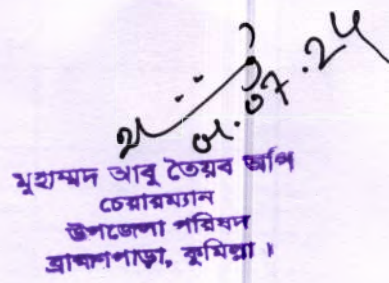 ০৮.০৭.২৫
মুহাম্মদ আবু তৈয়ব অপি
চেয়ারম্যান
উপজেলা পরিষদ
ব্রাহ্মণপাড়া, কুমিল্লা।